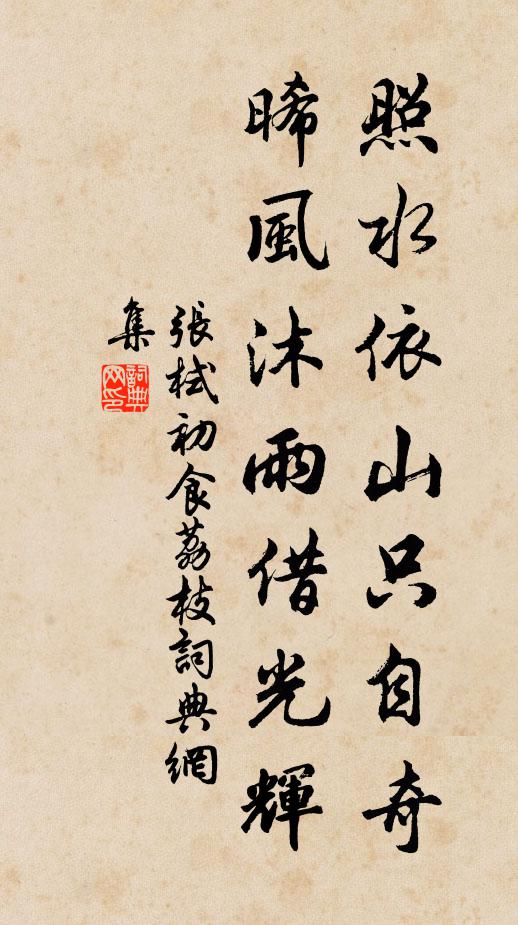 照水依山只自奇
晞風沐雨借光輝
張栻初食荔枝詞典網
集
詞典
网印